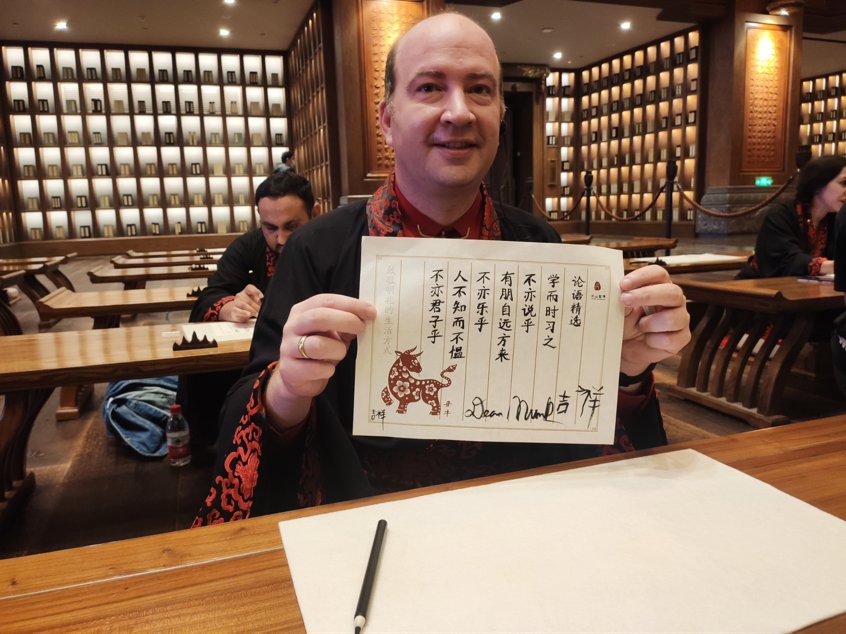 论语精选
学而时习之
不亦说乎
有朋自远方来
不亦乐乎
人不知而不愠
不亦君子乎
的生活方式
吉祥
Dean
吉祥